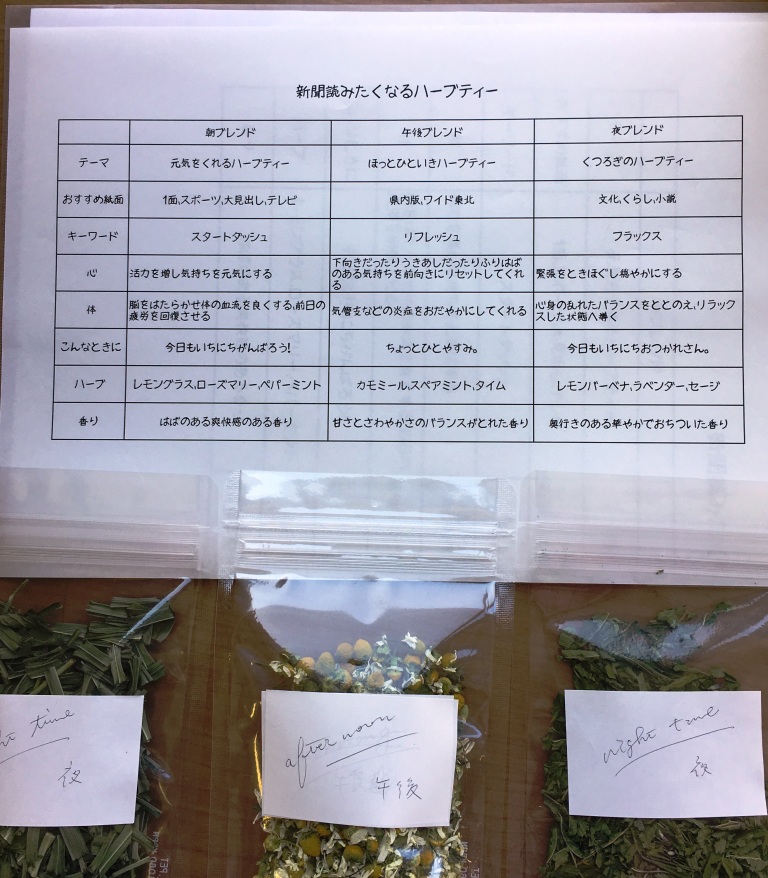 新聞読みたくなるハーブティー
朝ブレンド 午後ブレンド 夜ブレンド
テーマ 元気をくれるハーブティー ほっとひといきハーブティー くつろぎのハーブティー
おすすめ紙面 1面、スポーツ、大見出し、テレビ 県内版、ワイド東北 文化、くらし、小説
キーワード スタートダッシュ リフレッシュ フラックス
心 活力を増し気持ちを元気にする 下向きだったりうきあしだったりふりはば
のある気持ちを前向きにリセットしてくれ
る 緊張をときほぐし穏やかにする
体 脳をはたらかせ体の血流を良くする、前日の
疲労を回復させる 気管支などの炎症をおだやかにしてくれる 心身の乱れたバランスをととのえ、リラック
スした状態へ導く
こんなときに 今日もいちにちがんばろう! ちょっとひとやすみ。 今日もいちにちおつかれさん。
ハーブ レモングラス、ローズマリー、ペパーミント カモミール、スペアミント、タイム レモンバーベナ、ラベンダー、セージ
香り はばのある爽快感のある香り 甘さとさわやかさのバランスがとれた香り 奥行きのある華やかでおちついた香り
ht time
夜
after noon
午後
night time
夜